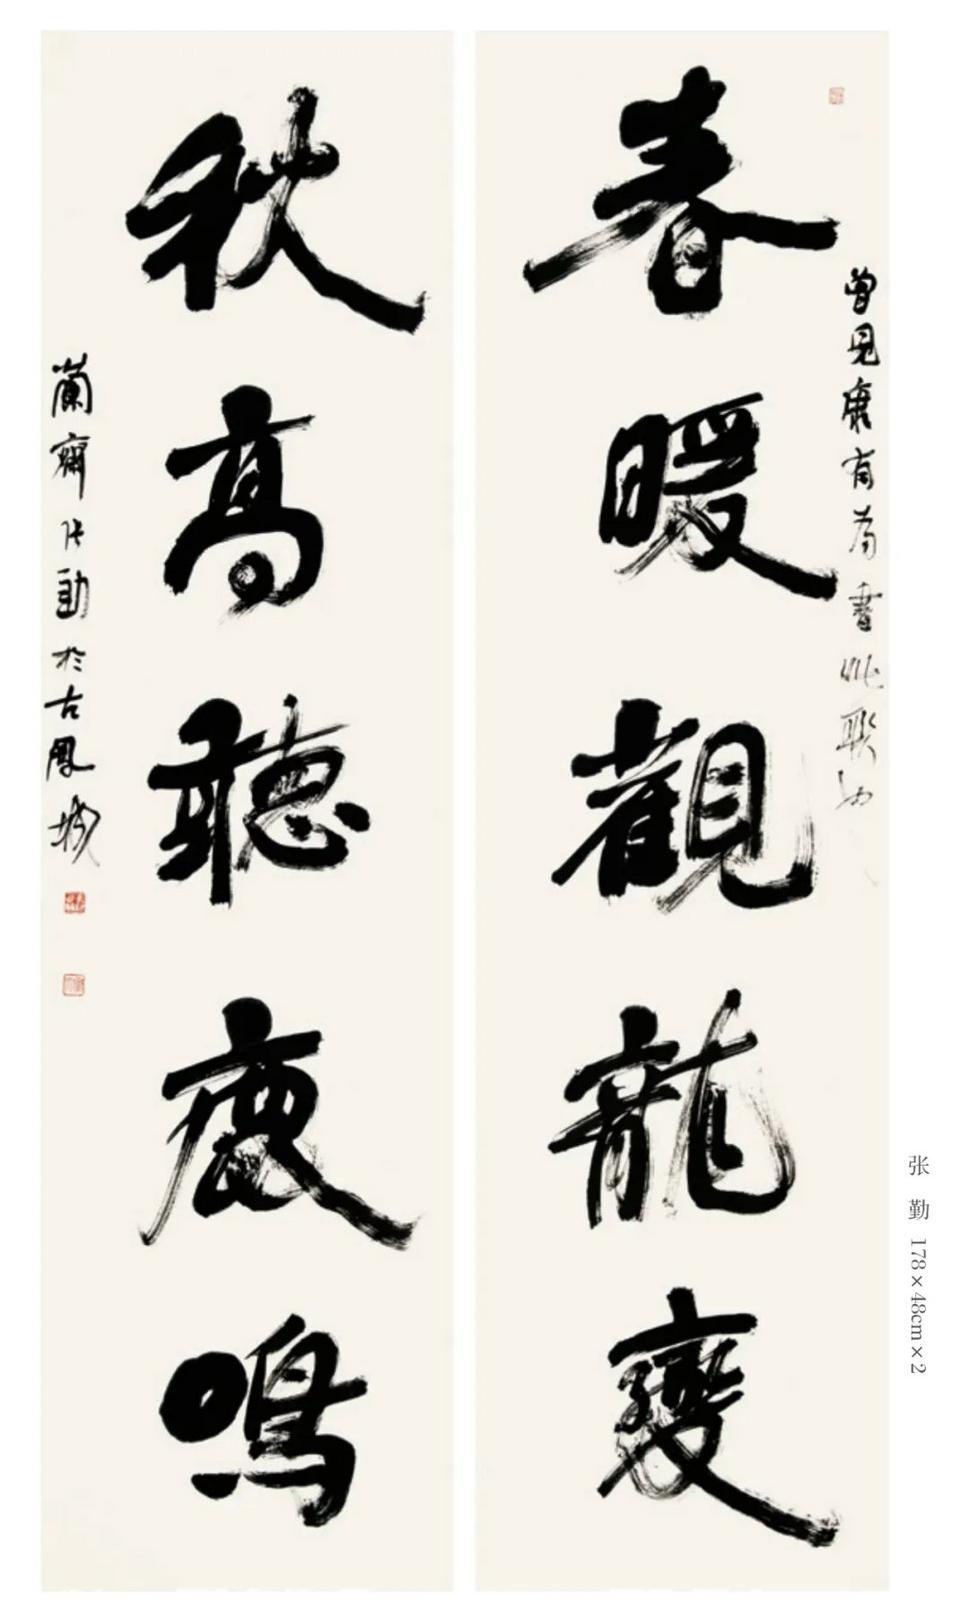 春暖觀龍變
曾見康有為書此聯也
秋高聽鹿鳴
蘭齋張勤於古鳳城
张勤 178×48cm×2